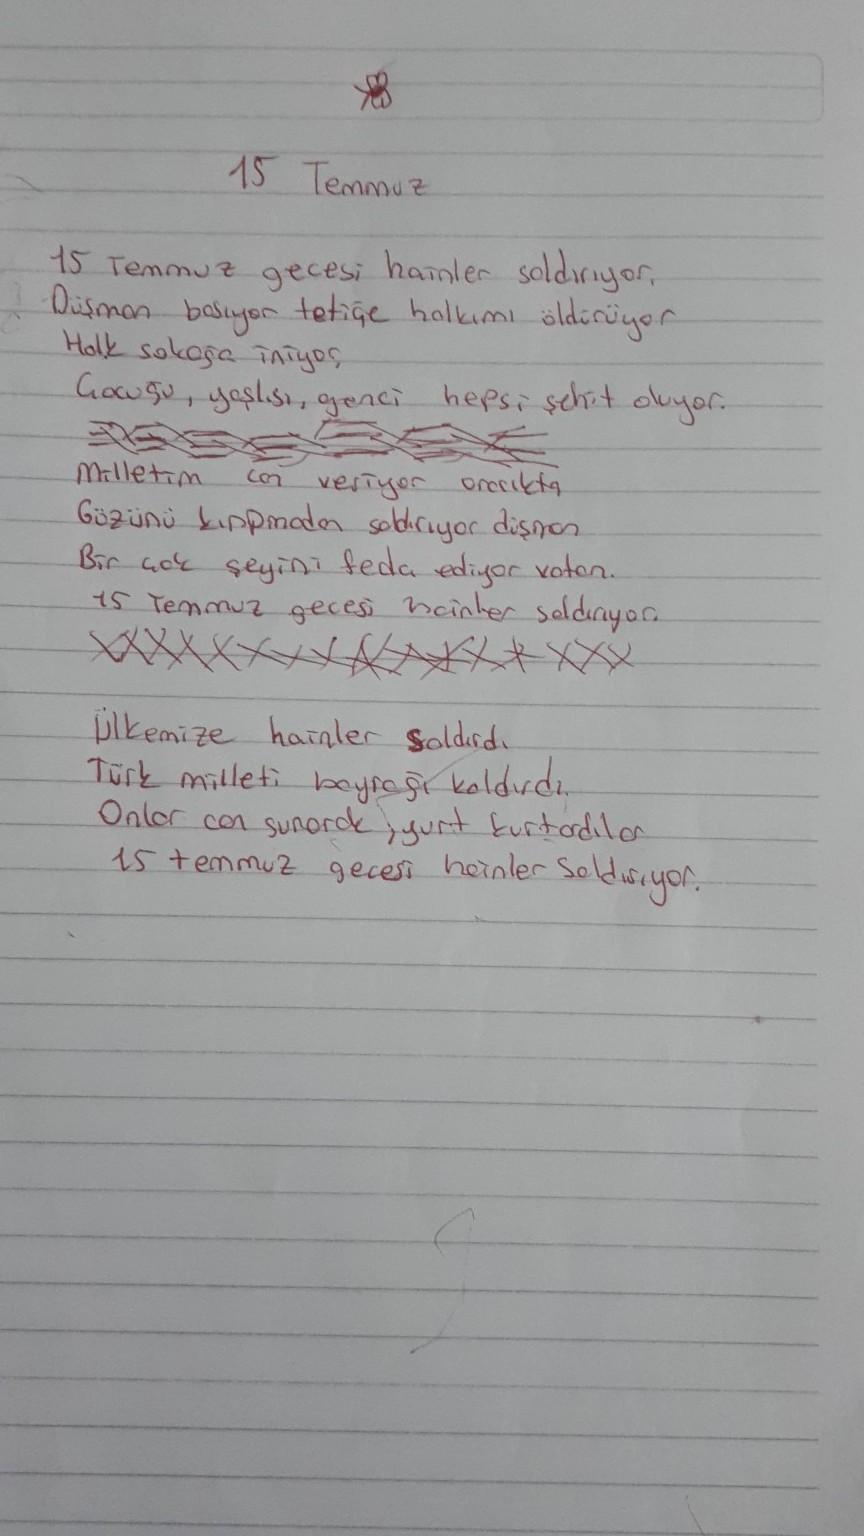 15 Temmuz
15 Temmuz gecesi hainler saldırıyor,
Düşman basıyor tetiğe halkımı öldürüyor
Halk sokağa iniyor,
Çocuğu, yaşlısı, genci hepsi şehit oluyor.
Milletim can veriyor oracıkta
Gözünü kırpmadan saldırıyor düşman
Bir çok şeyini feda ediyor vatan.
15 Temmuz gecesi hainler saldırıyor.
Ülkemize hainler saldırdı
Türk milleti bayrağı kaldırdı.
Onlar can sunarak, yurt kurtardılar
15 temmuz gecesi hainler Saldırıyor.